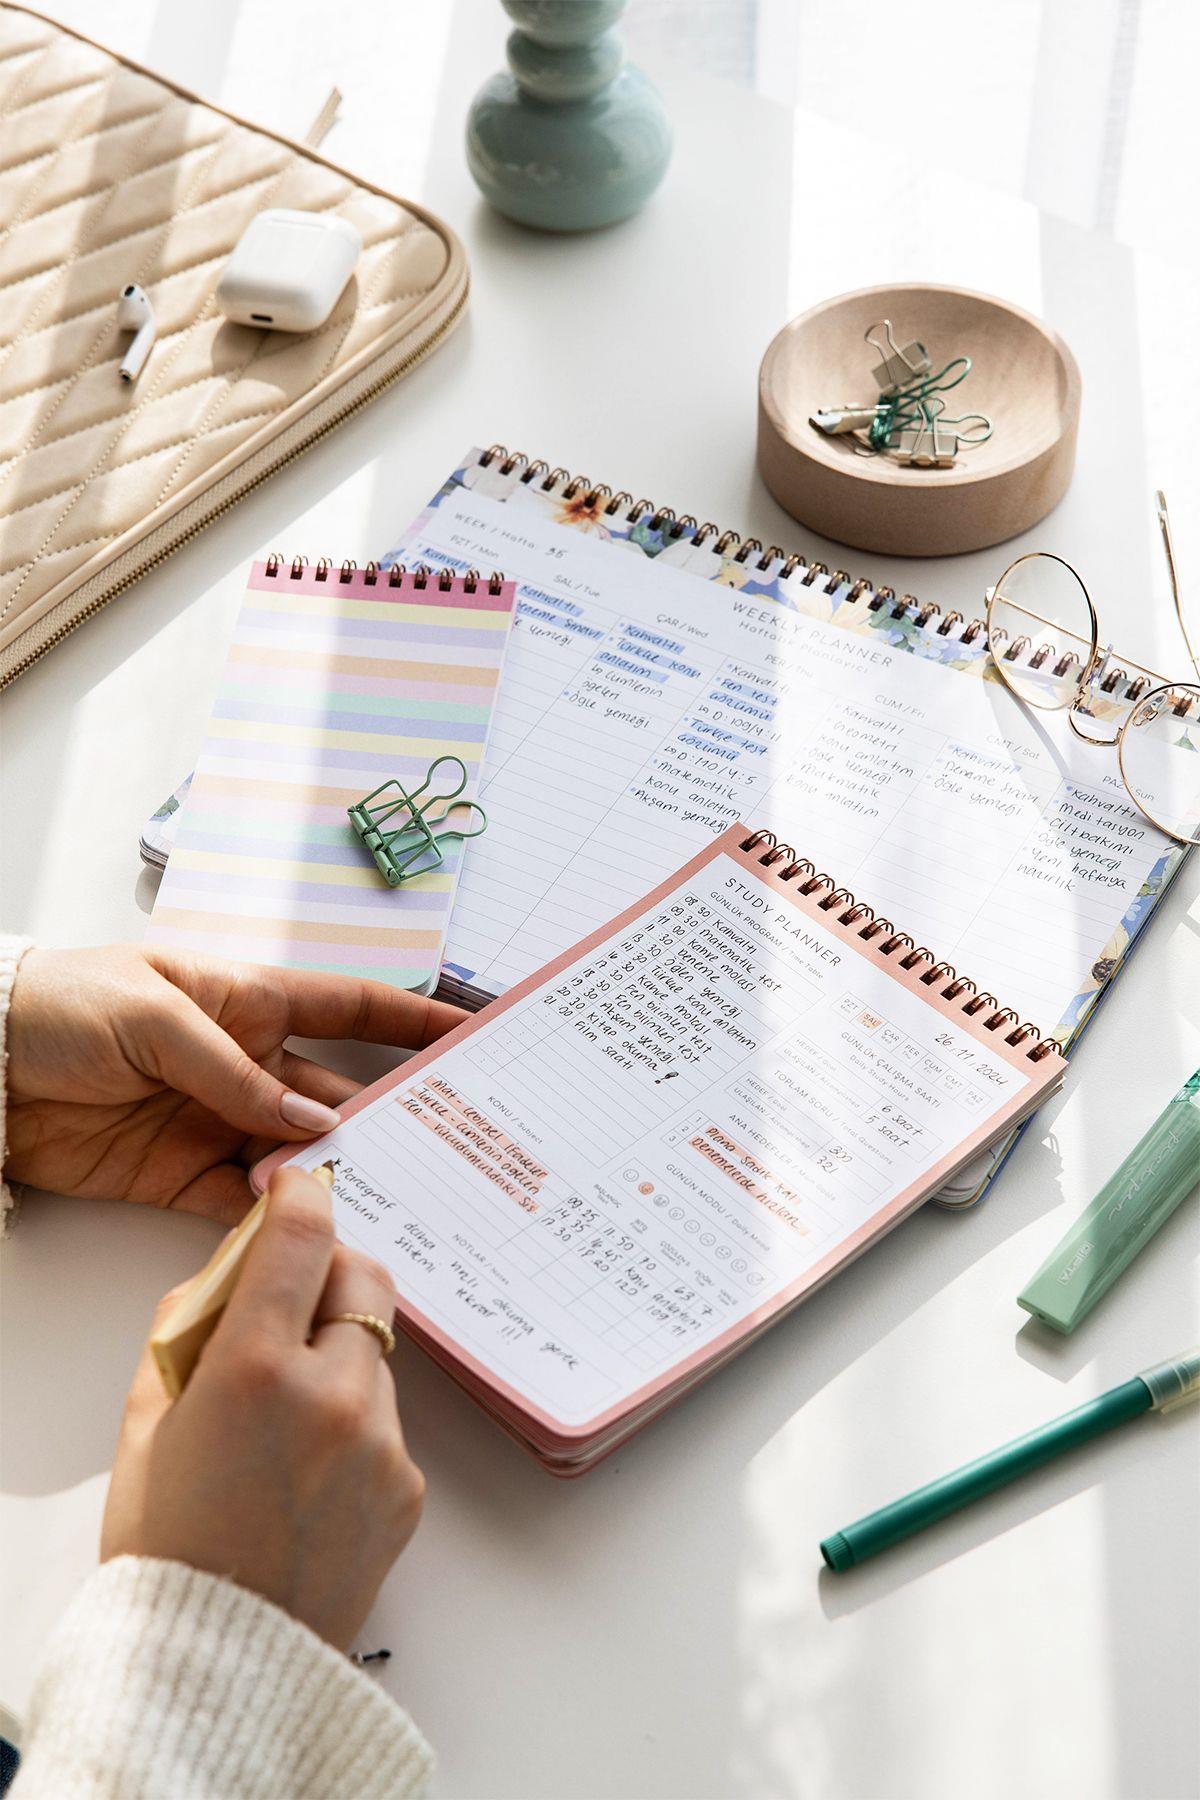 WEEK / Hafta: 35
WEEKLY PLANNER
Haftalık Planlayıcı
PZT / Mon
Kahvaltı
SAL / Tue
Kahvaltı
Deneme Sınavı
Öğle yemeği
ÇAR / Wed
Kahvaltı
Türkçe konu
anlatım
↳ Cümlenin
öğeleri
Öğle yemeği
PER / Thu
Kahvaltı
Fen test
çözümü
↳ D: 109/Y: 11
Türkçe test
çözümü
↳ D: 110 / Y: 5
Matematik
konu anlatım
Akşam yemeği
CUM / Fri
Kahvaltı
Geometri
konu anlatım
Öğle yemeği
Matematik
konu anlatım
CMT / Sat
Kahvaltı
Deneme Sınavı
Öğle yemeği
PAZ / Sun
Kahvaltı
Meditasyon
Cilt bakımı
Öğle yemeği
Yeni haftaya
hazırlık
STUDY PLANNER
GÜNLÜK PROGRAM / Time Table
08 30 Kahvaltı
09 30 Matematik test
11 00 Kahve molası
11 30 Deneme
13 30 Öğlen yemeği
14 30 Türkçe konu anlatım
16 30 Kahve molası
17 30 Fen bilimleri test
18 30 Fen bilimleri test
19 30 Akşam yemeği
20 30 Kitap okuma
21 00 Film saati !
26.11.2024
PZT SAL ÇAR PER CUM CMT PAZ
GÜNLÜK ÇALIŞMA SAATİ
Daily Study Hours
HEDEF / Goal 6 saat
ULAŞILAN / Accomplished 5 saat
TOPLAM SORU / Total Questions
HEDEF / Goal 300
ULAŞILAN / Accomplished 321
ANA HEDEFLER / Main Goals
1 Plana sadık kal
2 Denemelerde hızlan
3
GÜNÜN MODU / Daily Mood
KONU / Subject
BAŞLANGIÇ
BİTİŞ
DOĞRU
Mat - Cebirsel İfadeler 09.25 11.50 70 63 7
Türkçe - Cümlenin öğeleri 14.35 16.45 konu anlatım
Fen - Vücudumuzdaki Sis. 17.30 19.20 120 109 11
NOTLAR / Notes
* Paragraf daha hızlı okuma gerek
Solunum sistemi tekrar !!!